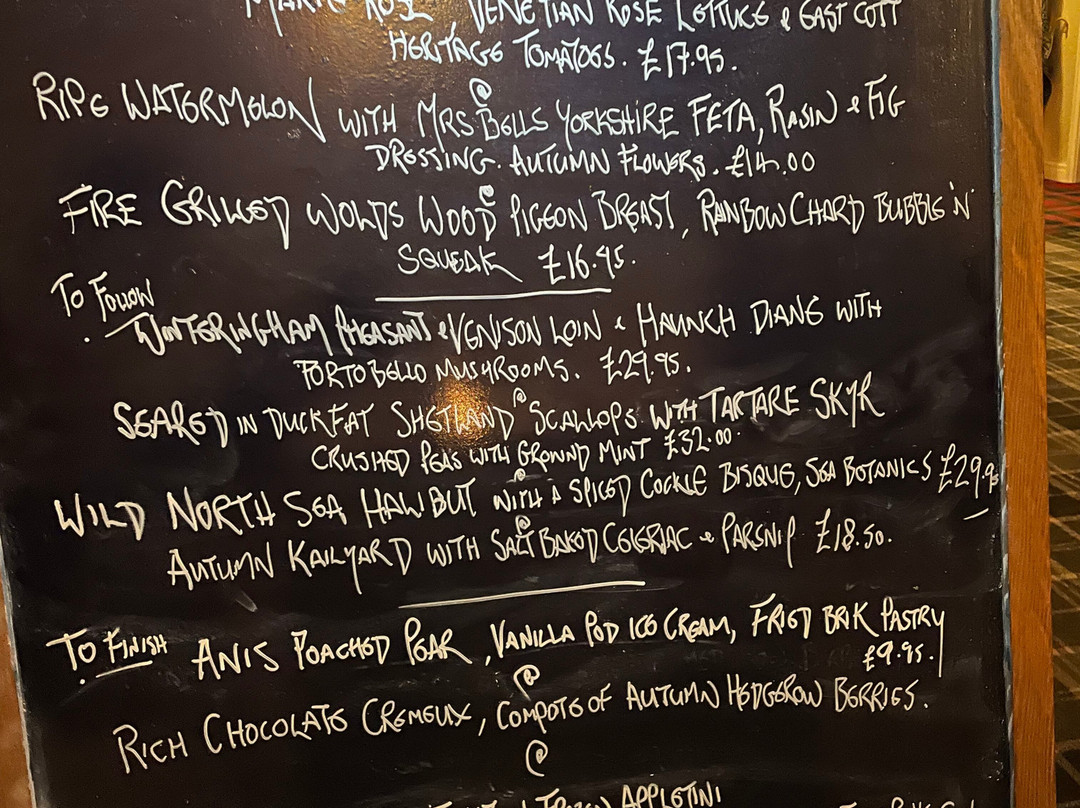 MARIE ROSE, VENETIAN ROSE LETTUCE & EAST COTT
HERITAGE TOMATOES. £17.95.
RIPE WATERMELON WITH MRS BELLS YORKSHIRE FETA, RASIN & FIG
DRESSING. AUTUMN FLOWERS. £14.00
FIRE GRILLED WOLDS WOOD PIGEON BREAST, RAINBOW CHARD BUBBLE 'N'
SQUEAK £16.95.
TO FOLLOW
WINTERINGHAM PHEASANT & VENISON LOIN & HAUNCH DIANE WITH
PORTOBELLO MUSHROOMS. £29.95.
SEARED IN DUCK FAT SHETLAND SCALLOPS WITH TARTARE SKYR
CRUSHED PEAS WITH GROUND MINT £32.00.
WILD NORTH SEA HALIBUT WITH A SPICED COCKLE BISQUE, SEA BOTANICS £29.95
AUTUMN KAILYARD WITH SALT BAKED CELERIAC & PARSNIP £18.50.
TO FINISH ANIS POACHED PEAR, VANILLA POD ICE CREAM, FRIED BRIK PASTRY
£9.95.
RICH CHOCOLATE CREMEUX, COMPOTE OF AUTUMN HEDGEROW BERRIES.
FROZEN APPLETINI